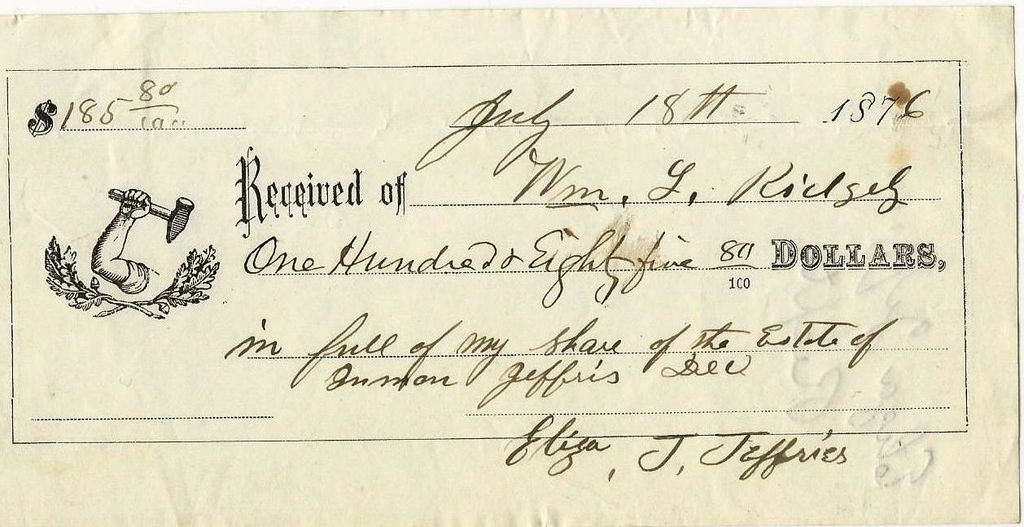 $ 185 80/100
July 18th 1876
Received of Wm. L. Ridgely
One Hundred & Eighty five 80/100 DOLLARS,
in full of my share of the Estate of
Inmon Jeffris Dec
Eliza, J. Jeffries